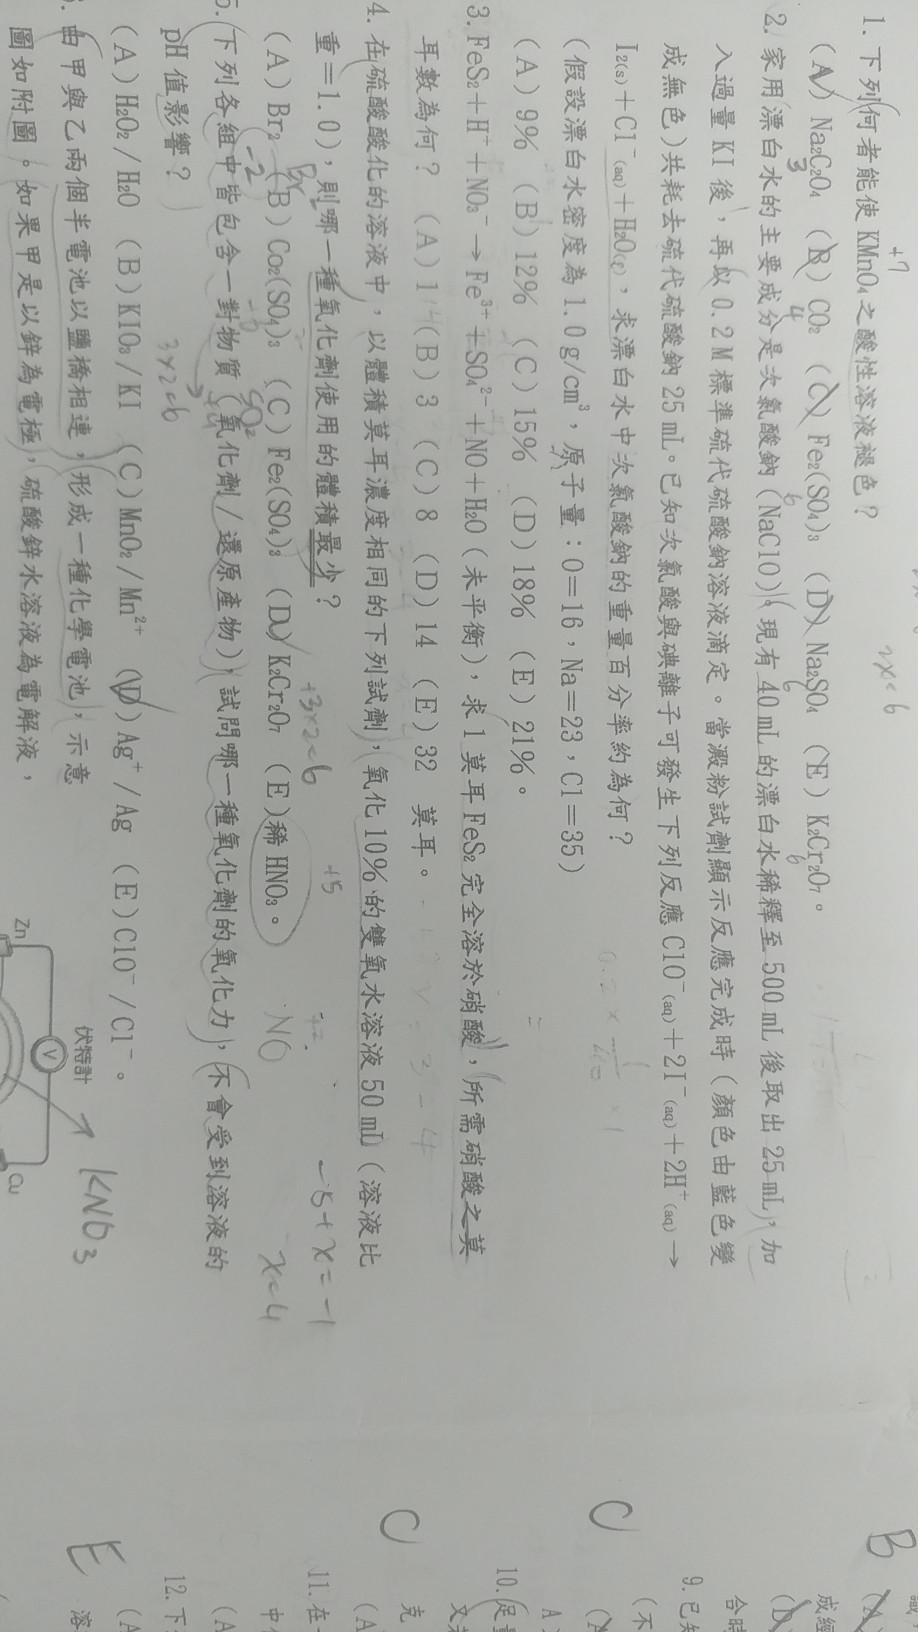 1. 下列何者能使 KMnO₄之酸性溶液褪色？
+7
(A) Na₂C₂O₄ (B) CO₂ (C) Fe₂(SO₄)₃ (D) Na₂SO₄ (E) K₂Cr₂O₇。
3 4 6 6 6
2x=6
2. 家用漂白水的主要成分是次氯酸鈉(NaClO)，現有 40 mL 的漂白水稀釋至 500 mL 後取出 25 mL，加
入過量 KI 後，再以 0.2 M 標準硫代硫酸鈉溶液滴定。當澱粉試劑顯示反應完成時(顏色由藍色變
成無色)共耗去硫代硫酸鈉 25 mL。已知次氯酸與碘離子可發生下列反應 ClO⁻(aq)＋2I⁻(aq)＋2H⁺(aq)→
I₂(s)＋Cl⁻(aq)＋H₂O(ℓ)，求漂白水中次氯酸鈉的重量百分率約為何？
(假設漂白水密度為 1.0 g/cm³，原子量：O＝16，Na＝23，Cl＝35)
(A) 9% (B) 12% (C) 15% (D) 18% (E) 21%。
3. FeS₂＋H⁺＋NO₃⁻→Fe³⁺＋SO₄²⁻＋NO＋H₂O(未平衡)，求 1 莫耳 FeS₂ 完全溶於硝酸，所需硝酸之莫
耳數為何？ (A) 1 (B) 3 (C) 8 (D) 14 (E) 32 莫耳。
4. 在硫酸酸化的溶液中，以體積莫耳濃度相同的下列試劑，氧化 10%的雙氧水溶液 50 mL(溶液比
重＝1.0)，則哪一種氧化劑使用的體積最少？
+3x2=6
+5
-5+x=-1
(A) Br₂ (B) Co₂(SO₄)₃ (C) Fe₂(SO₄)₃ (D) K₂Cr₂O₇ (E)稀 HNO₃。
NO
x=4
5. 下列各組中皆包含一對物質(氧化劑/還原產物)，試問哪一種氧化劑的氧化力，不會受到溶液的
pH 值影響？
3x2=6
(A) H₂O₂/H₂O (B) KIO₃/KI (C) MnO₂/Mn²⁺ (D) Ag⁺/Ag (E) ClO⁻/Cl⁻。
由甲與乙兩個半電池以鹽橋相連，形成一種化學電池，示意
圖如附圖。如果甲是以鋅為電極，硫酸鋅水溶液為電解液，
伏特計
V
Zn
Cu
KNO₃
B
C
C
E
成經
(D)
合時
9. 已知
(不
(A)
10. 足量
克
11. 在
(A)
中
(A
12. 下
(A
溶